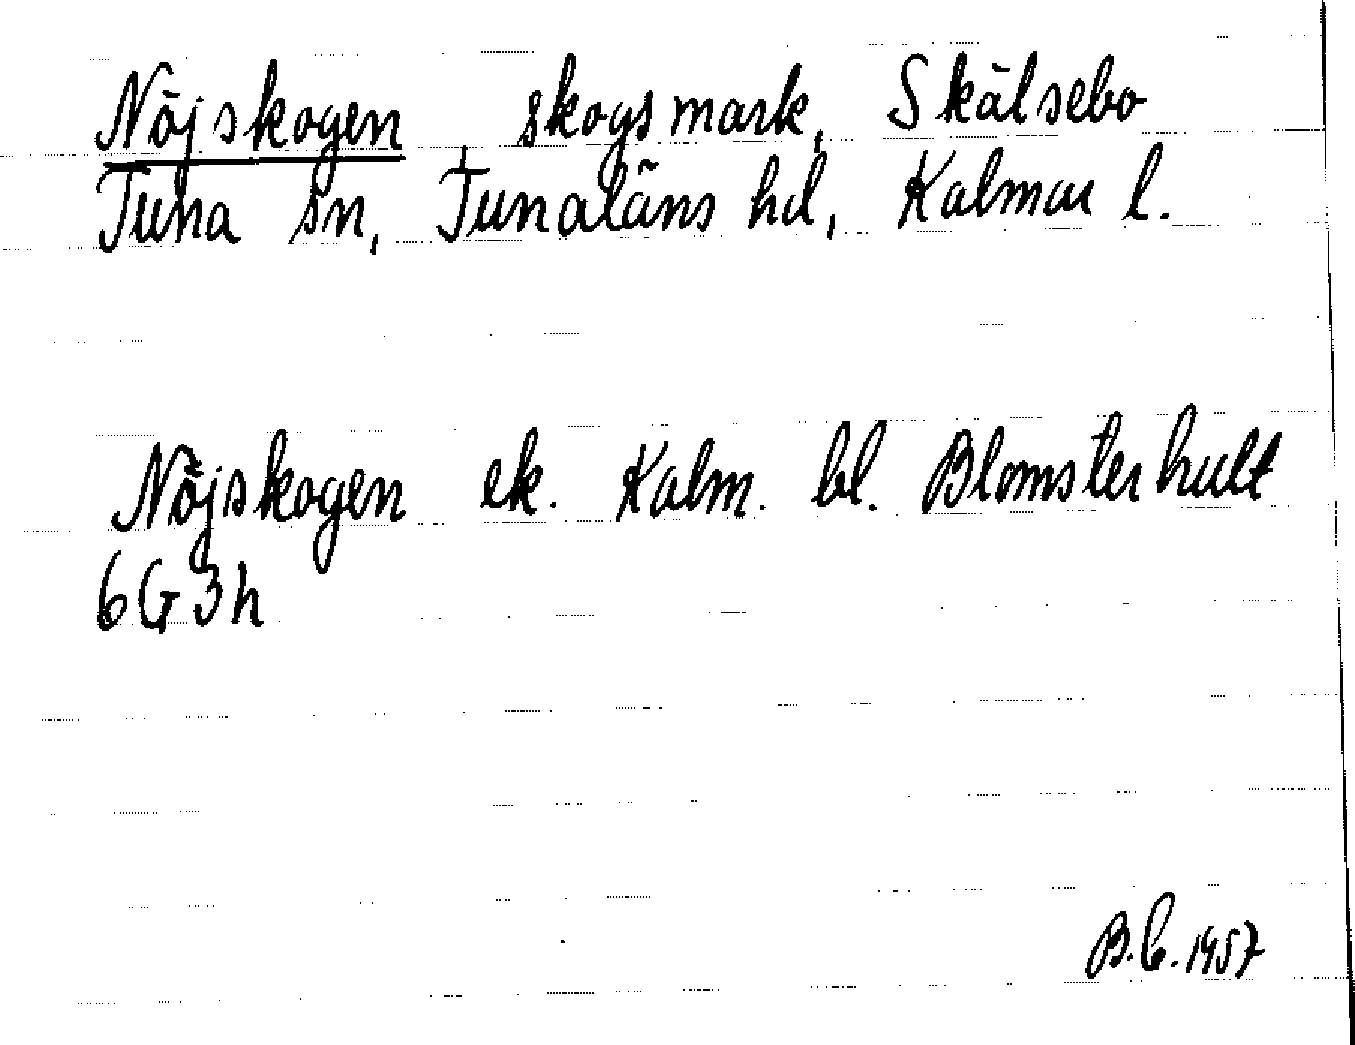 Nöjskogen skogsmark, Skälsebo
Tuna sn, Tunaläns hd, Kalmar l.
Nöjskogen ek. Kalm. bl. Blomsterhult
6G3h
B.C. 1957